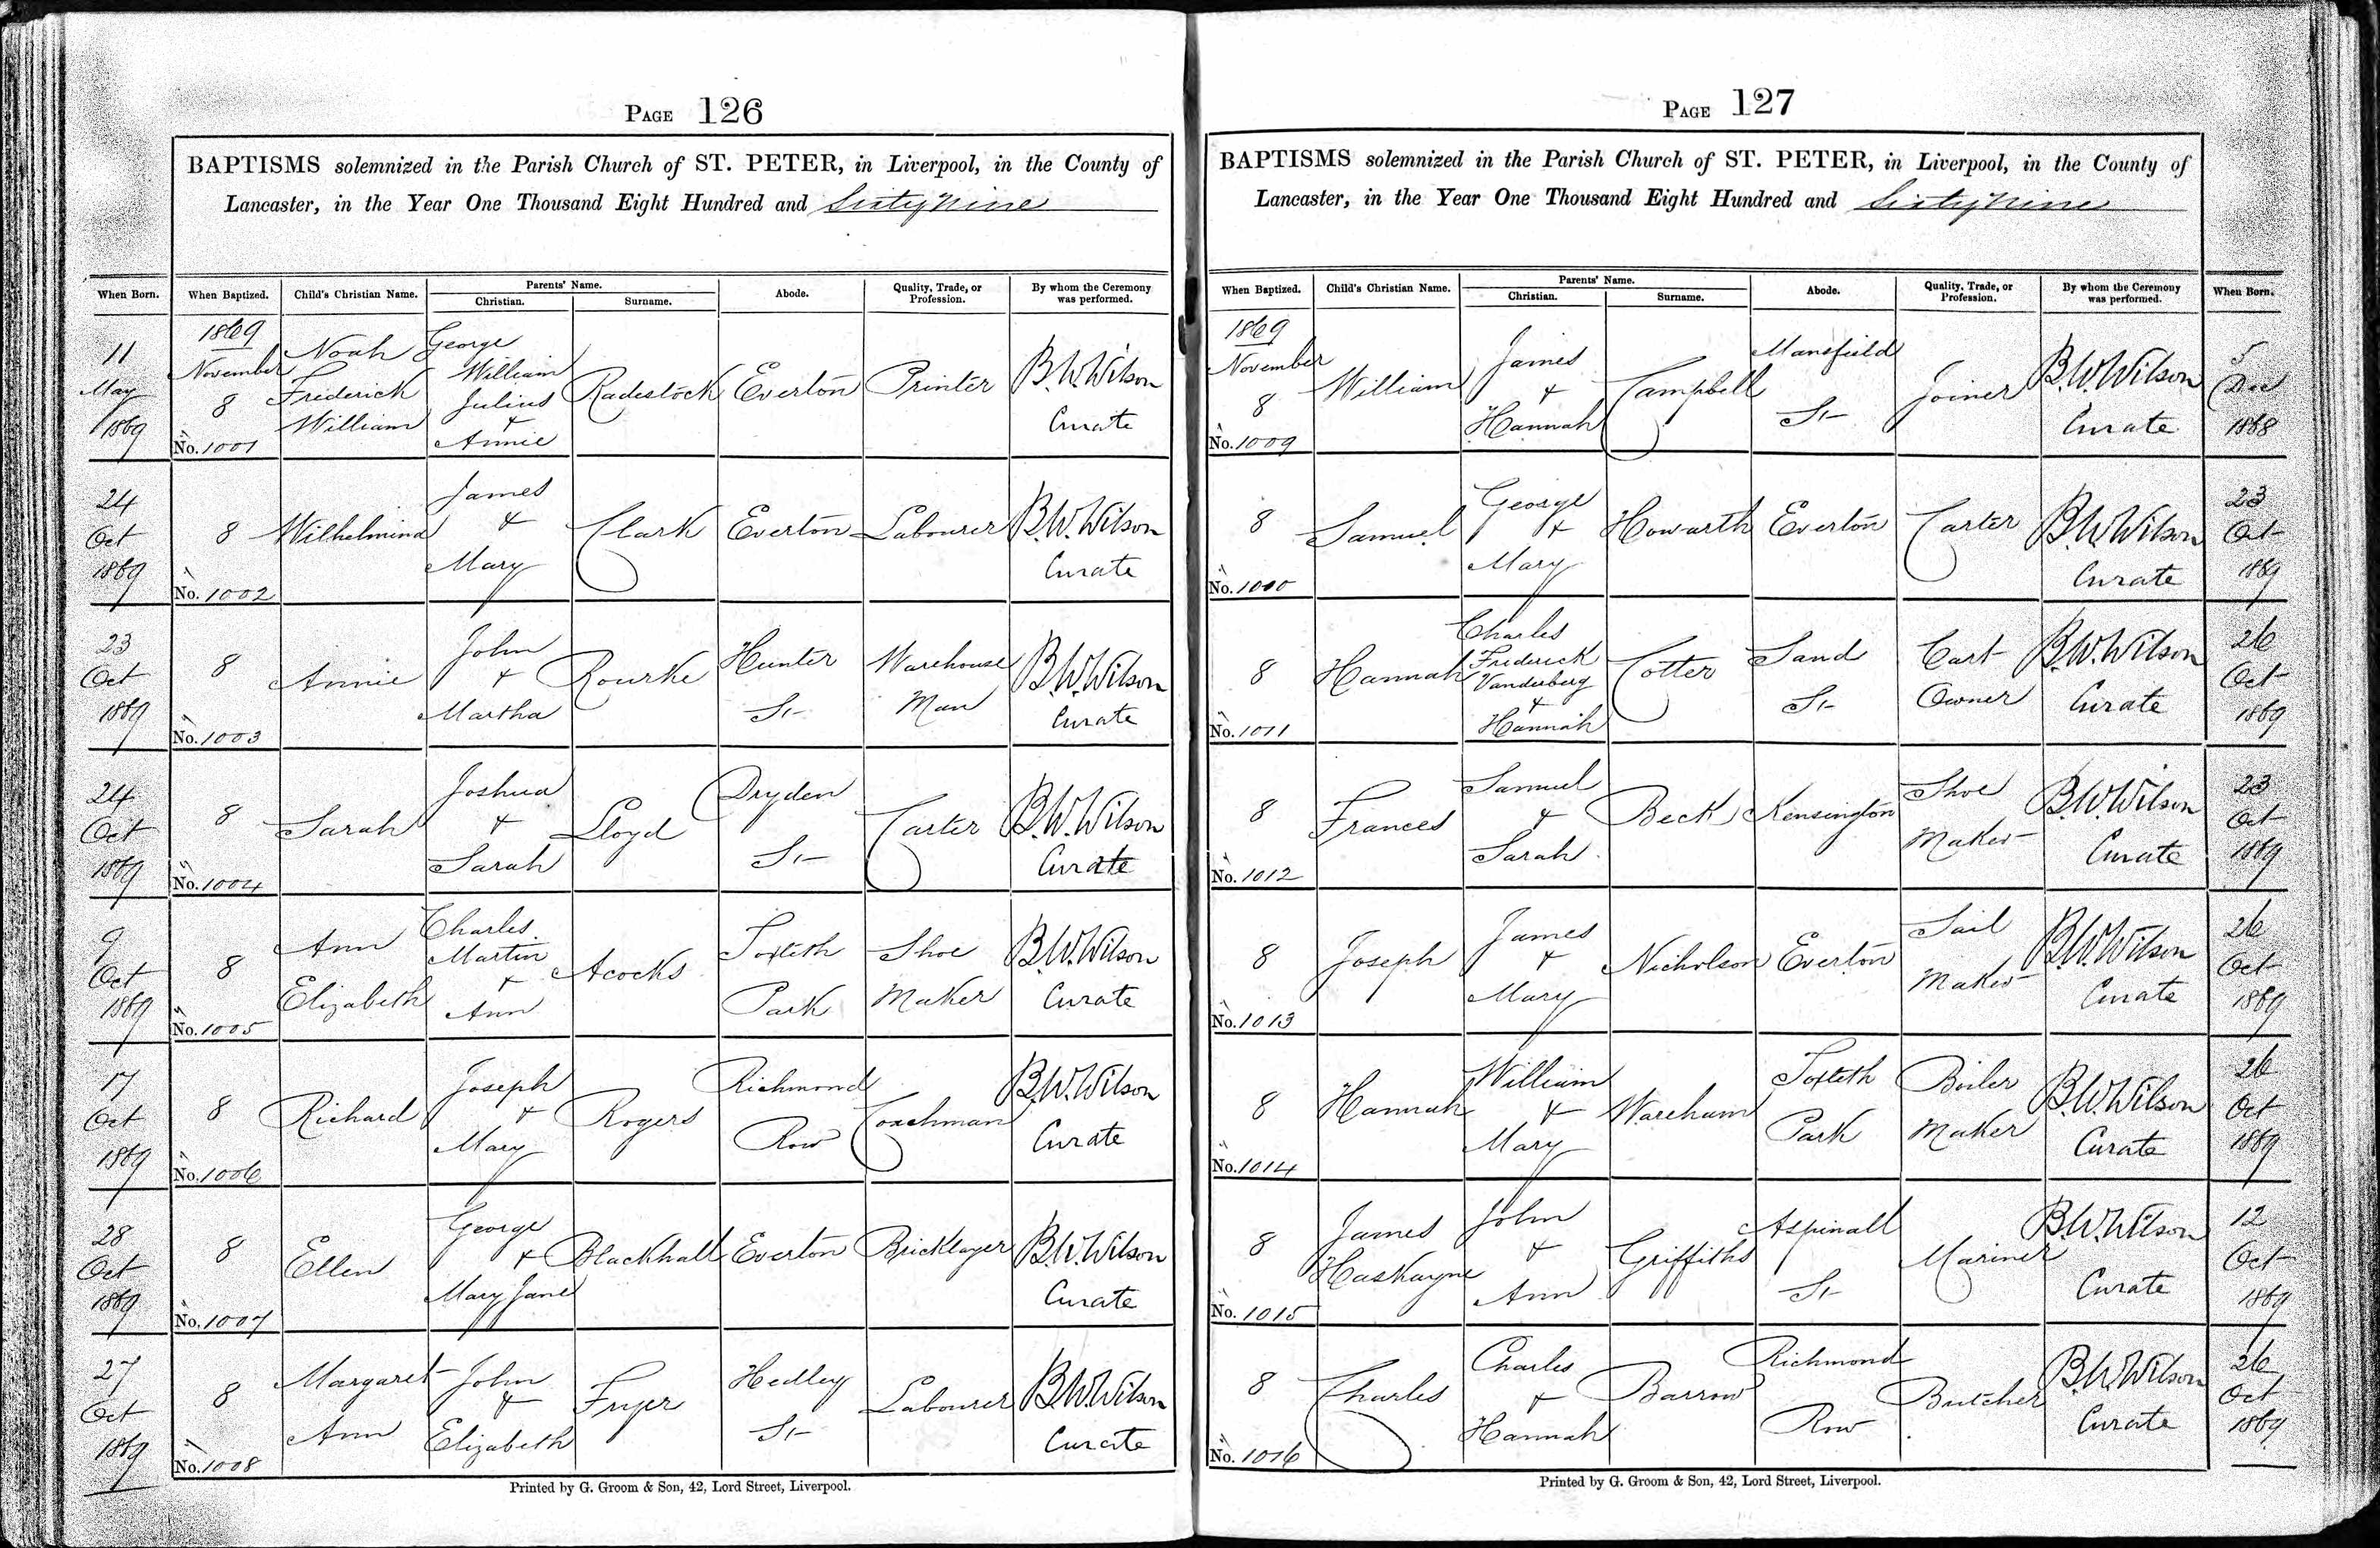 PAGE 126
BAPTISMS solemnized in the Parish Church of ST. PETER, in Liverpool, in the County of
Lancaster, in the Year One Thousand Eight Hundred and Sixty Nine
When Born. When Baptized. Child's Christian Name. Parents' Name. Christian. Surname. Abode. Quality, Trade, or Profession. By whom the Ceremony was performed.
11 May 1869 1869 November 8 No. 1001 Noah Frederick William George William Julius & Annie Radestock Everton Printer B.W. Wilson Curate
24 Oct 1869 8 No. 1002 Wilhelmina James & Mary Clark Everton Labourer B.W. Wilson Curate
23 Oct 1869 8 No. 1003 Annie John & Martha Rourke Hunter St Warehouse Man B.W. Wilson Curate
24 Oct 1869 8 No. 1004 Sarah Joshua & Sarah Lloyd Dryden St Carter B.W. Wilson Curate
9 Oct 1869 8 No. 1005 Ann Elizabeth Charles Martin & Ann Acocks Toxteth Park Shoe Maker B.W. Wilson Curate
17 Oct 1869 8 No. 1006 Richard Joseph & Mary Rogers Richmond Row Coachman B.W. Wilson Curate
28 Oct 1869 8 No. 1007 Ellen George & Mary Jane Blackhall Everton Bricklayer B.W. Wilson Curate
27 Oct 1869 8 No. 1008 Margaret Ann John & Elizabeth Fryer Hedley St Labourer B.W. Wilson Curate
Printed by G. Groom & Son, 42, Lord Street, Liverpool.
PAGE 127
BAPTISMS solemnized in the Parish Church of ST. PETER, in Liverpool, in the County of
Lancaster, in the Year One Thousand Eight Hundred and Sixty Nine
When Baptized. Child's Christian Name. Parents' Name. Christian. Surname. Abode. Quality, Trade, or Profession. By whom the Ceremony was performed. When Born.
1869 November 8 No. 1009 William James & Hannah Campbell Mansfield St Joiner B.W. Wilson Curate 5 Dec 1868
8 No. 1010 Samuel George & Mary Howarth Everton Carter B.W. Wilson Curate 23 Oct 1869
8 No. 1011 Hannah Charles Frederick Vanderberg & Hannah Cotter Sand St Cart Owner B.W. Wilson Curate 26 Oct 1869
8 No. 1012 Frances Samuel & Sarah Beck Kensington Shoe Maker B.W. Wilson Curate 23 Oct 1869
8 No. 1013 Joseph James & Mary Nicholson Everton Sail Maker B.W. Wilson Curate 26 Oct 1869
8 No. 1014 Hannah William & Mary Wareham Toxteth Park Boiler Maker B.W. Wilson Curate 26 Oct 1869
8 No. 1015 James Haskayne John & Ann Griffiths Aspinall St Mariner B.W. Wilson Curate 12 Oct 1869
8 No. 1016 Charles Charles & Hannah Barrow Richmond Row Butcher B.W. Wilson Curate 26 Oct 1869
Printed by G. Groom & Son, 42, Lord Street, Liverpool.